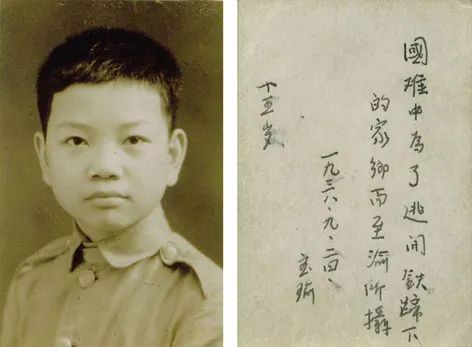 國难中為了逃開鉄蹄下
的家鄉而至渝所攝
一九三八·九·二四、
瑜
十五岁